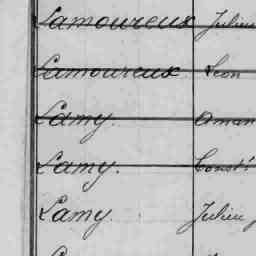 Lamoureux Julien
Lamoureux Léon
Lamy. Aman
Lamy. Const
Lamy Julien